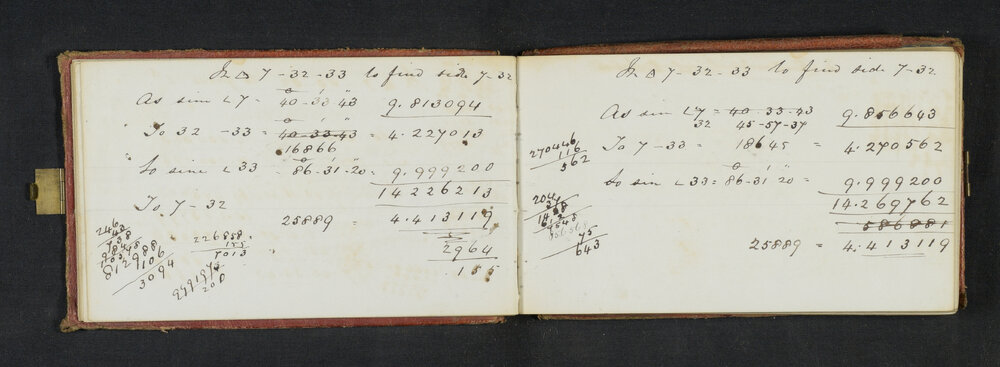 In △ 7-32-33 to find side 7-32
As sin ∠7 = 40-33-43 9.813094
To 32-33 = 40-33-43 = 4.227013
16866
So sine ∠33 = 86-31-20 = 9.999200
14226213
To 7-32
25889 = 4.413119
2964
.155
246
812988
106
3094
226858
155
7013
200
In △ 7-32-33 to find side 7-32
As sin ∠7 = 40-33-43 9.856643
32 45-57-37
To 7-33 = 18645 = 4.270562
So sin ∠33 = 86-31-20 = 9.999200
14.269762
586881
25889 = 4.413119
270446
116
562
204
75
643